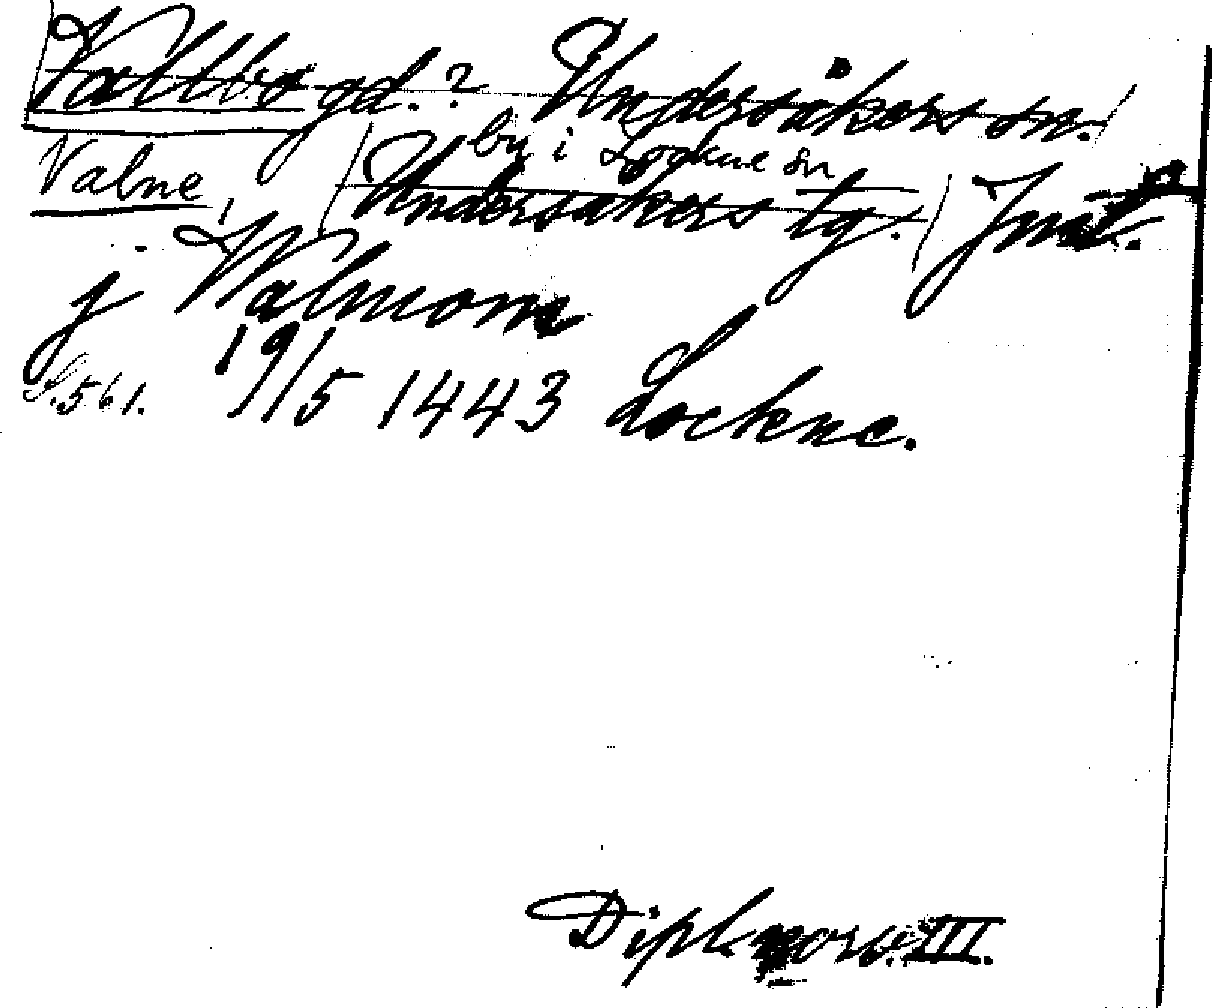 Vallbo gd.? Undersåkers sn.
by i Lockne sn
Valne, Undersåkers tg. Jmt.
j Walnom
S. 561. 19/5 1443 Lockne.
Dipl norv. III.